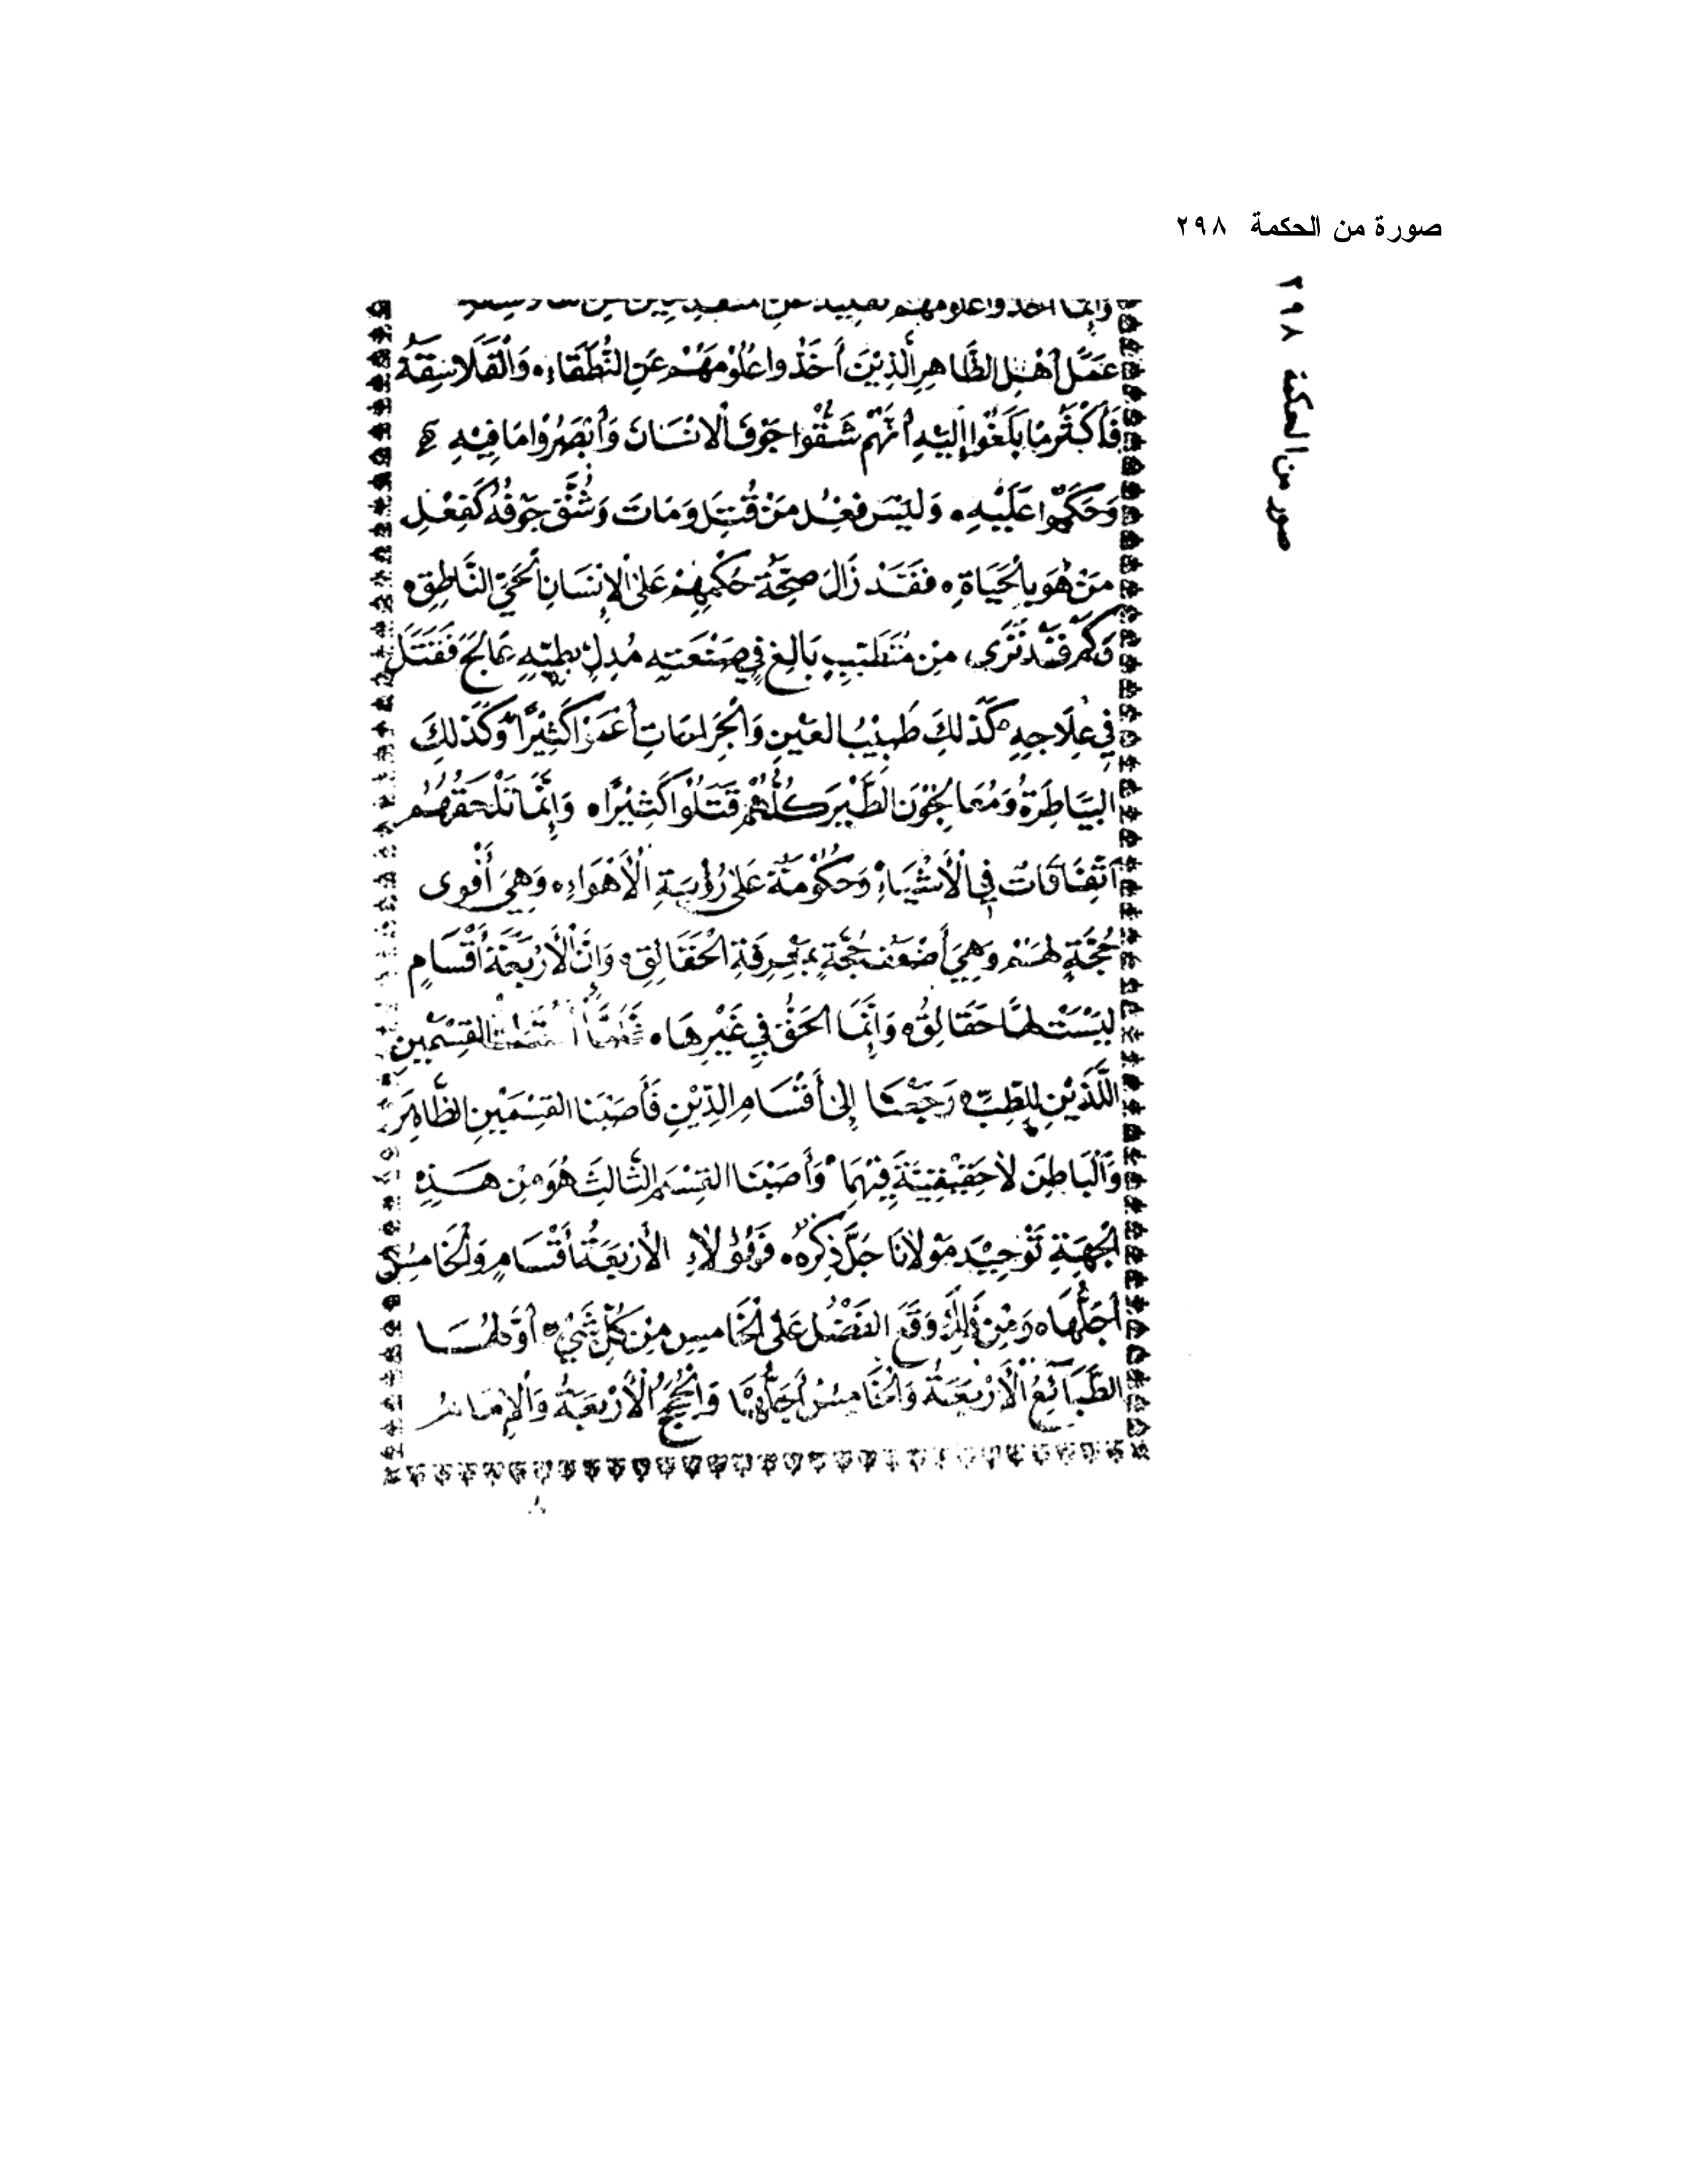 صورة من الحكمة ٢٩٨
صور من الحكمة ٢٩٨
وَإِنَّمَا أَخَذُوا عُلُومَهُمْ
عَمَّلَ أَهْلِ الظَّاهِرِ الَّذِيْنَ أَخَذُوا عُلُوْمَهُمْ عَنِ النُّطَقَاءِ. وَالْفَلَاسِفَةُ
فَأَكْثَرُ مَا بَلَغُوا إِلَيْهِ أَنَّهُمْ شَقُّوا جَوْفَ الْإِنْسَانَ وَأَبْصَرُوا مَا فِيْهِ
وَحَكَمُوا عَلَيْهِ. وَلَيْسَ فِعْلُ مَنْ قُتِلَ وَمَاتَ وَشُقَّ جَوْفُهُ كَفِعْلِ
مَنْ هُوَ بِالْحَيَاةِ. فَقَدْ زَالَ صِحَّةُ حُكْمِهِمْ عَلَىٰ الْإِنْسَانِ الْحَيِّ النَّاطِقِ.
وَكَمْ قَدْ نَرَىٰ مِنْ مُتَطَبِّبٍ بَالِغٍ فِي صَنْعَتِهِ مُدِلٍّ بِطِبِّهِ عَالَجَ فَقَتَلَ
فِي عِلَاجِهِ كَذَلِكَ طَبِيْبُ العَيْنِ وَالْجَرَاحَاتِ أَعْمَرَ كَثِيْرًا وَكَذَلِكَ
البَيَاطِرَةُ وَمُعَالِجُوْنَ الطَّيْرَ كُلُّهُمْ قَتَلُوا كَثِيْرًا. وَإِنَّمَا تَلْحَقُهُمْ
اتِّفَاقَاتٌ فِي الْأَشْيَاءِ وَحُكُوْمَةٌ عَلَىٰ رُؤْيَةِ الْأَهْوَاءِ. وَهِيَ أَقْوَى
حُجَّةٍ لَهُمْ وَهِيَ أَضْعَفُ حُجَّةٍ بِمَعْرِفَةِ الْحَقَائِقِ. وَأَنَّ الْأَرْبَعَةَ أَقْسَامٍ
لَيْسَتْ لَهَا حَقَائِقُ. وَإِنَّمَا الحَقُّ فِي غَيْرِهَا. القِسْمَيْنِ
اللَّذَيْنِ لِلطِّبِّ. رَجَعْنَا إِلَىٰ أَقْسَامِ الدِّيْنِ فَأَصَبْنَا القِسْمَيْنِ الظَّاهِرَ
وَالْبَاطِنَ لَا حَقِيْقِيَّةَ فِيْهِمَا. وَأَصَبْنَا القِسْمَ الثَّالِثَ هُوَ مِنْ هَذِهِ
الْجِهَةِ تَوْحِيْدَ مَوْلَانَا جَلَّ ذِكْرُهُ. فَهَؤُلَاءِ الْأَرْبَعَةُ أَقْسَامٍ وَالْخَامِسُ
أَجَلُّهَا. وَمِنْ ذَلِكَ وَقَعَ الفَضْلُ عَلَى الْخَامِسِ مِنْ كُلِّ شَيْءٍ. أَوَّلُهَا
الطَّبَائِعُ الْأَرْبَعَةُ وَالْخَامِسُ أَجَلُّهَا وَالْحُجَجُ الْأَرْبَعَةُ وَالْإِمَامُ